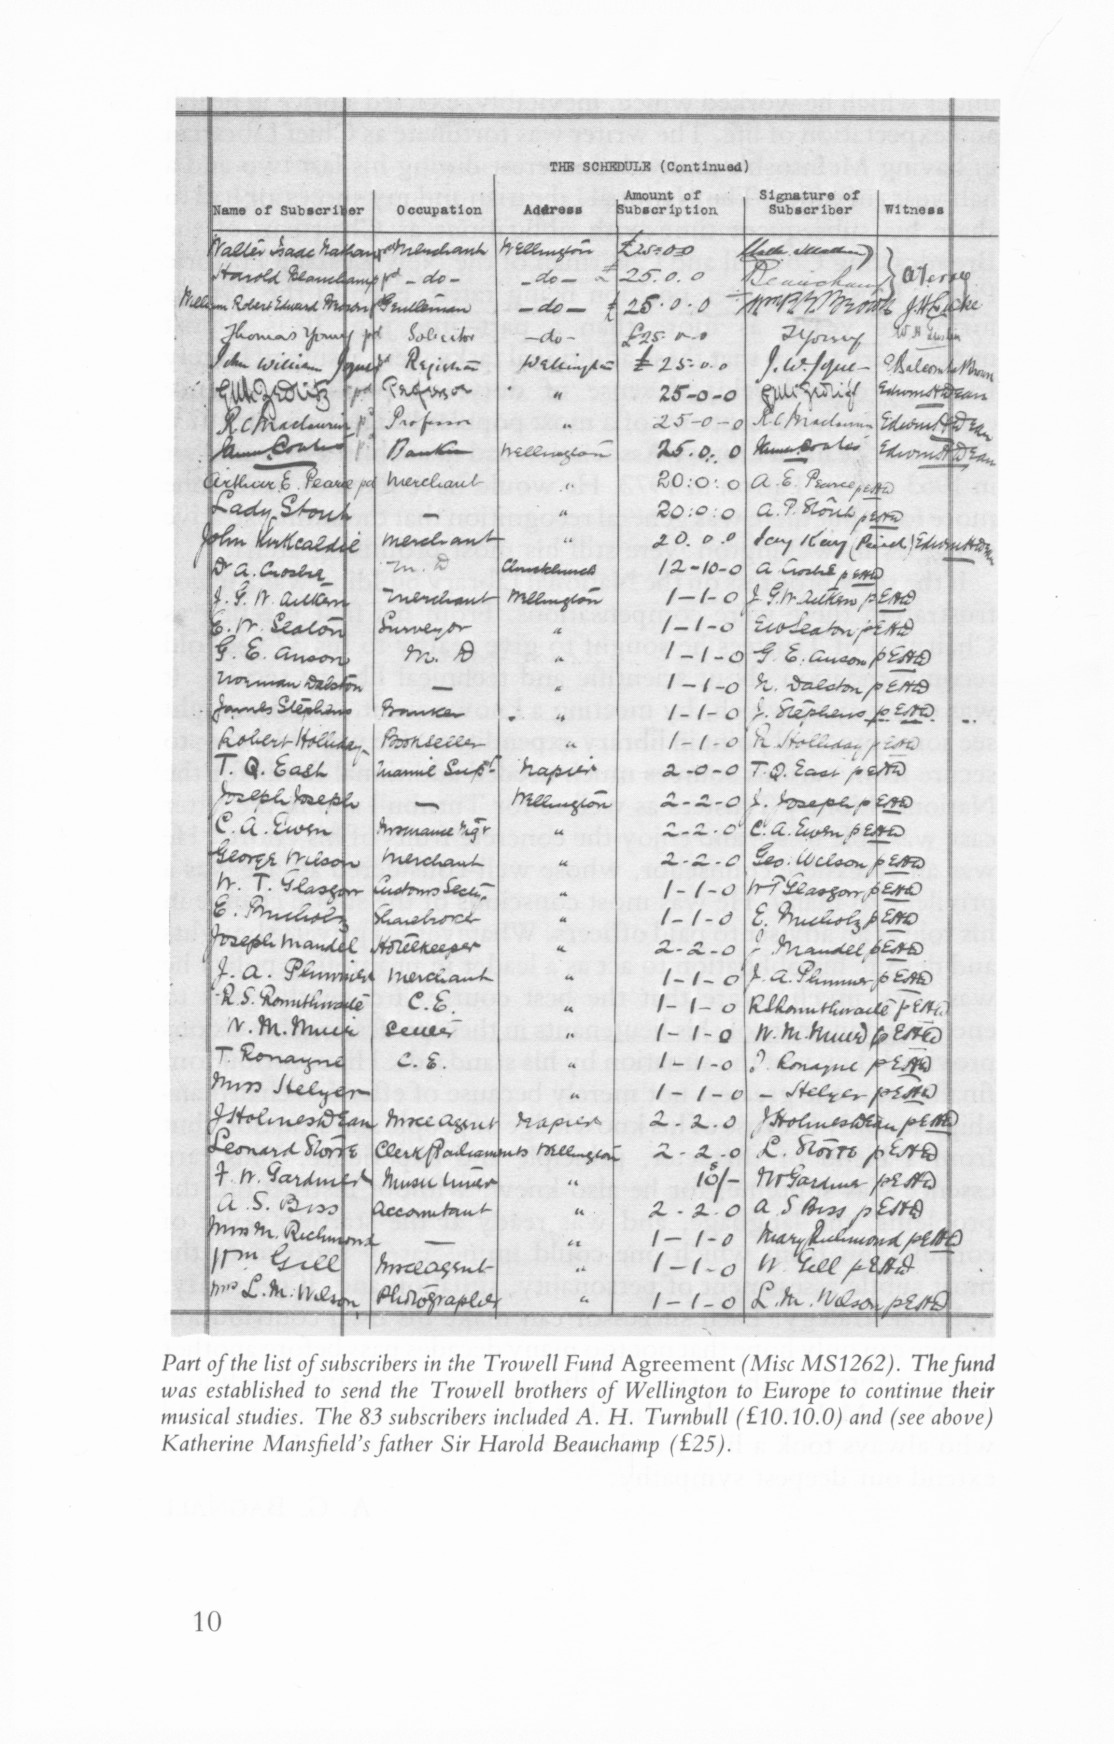 THE SCHEDULE (Continued)
Name of Subscriber Occupation Address Amount of Subscription Signature of Subscriber Witness
Walter Isaac Nathan pd Merchant Wellington £25.0.0
Harold Beauchamp pd - do - - do - £25.0.0 Beauchamp
William Robert Edward Gentleman - do - £25.0.0
Thomas Young pd Solicitor - do - £25.0.0 T Young
John William Joynes pd Registrar Wellington £25.0.0
pd Professor " 25-0-0 Edwin H Dean
R C Maclaurin pd Professor " 25-0-0 R C Maclaurin Edwin H Dean
James Coates Banker Wellington 25.0.0 James Coates Edwin H Dean
Arthur E. Pearce pd Merchant " 20:0:0 A. E. Pearce p EHD
Lady Stout — " 20:0:0 A. P. Stout p EHD
John Kirkcaldie Merchant " 20.0.0 Edwin H Dean
Dr A. Crosbie M. D Christchurch 12-10-0 A Crosbie p EHD
J. G. W. Aitken Merchant Wellington 1-1-0 J. G. W. Aitken p EHD
E. W. Seaton Surveyor " 1-1-0 E W Seaton p EHD
G. E. Anson M. D " 1-1-0 G. E. Anson p EHD
Norman Dalston — " 1-1-0 N. Dalston p EHD
James Stephens Banker " 1-1-0 J. Stephens p EHD
Robert Holliday Bookseller " 1-1-0 R Holliday p EHD
T. Q. East Supt Napier 2-0-0 T. Q. East p EHD
Joseph Joseph — Wellington 2-2-0 J. Joseph p EHD
C. A. Ewen Insurance Mgr " 2-2-0 C. A. Ewen p EHD
George Wilson Merchant " 2-2-0 Geo. Wilson p EHD
W. T. Glasgow Customs Secty " 1-1-0 W T Glasgow p EHD
E. Bucholz Sharebroker " 1-1-0 E. Bucholz p EHD
Joseph Mandel Hotelkeeper " 2-2-0 J Mandel p EHD
J. A. Plimmer Merchant " 1-1-0 J. A. Plimmer p EHD
R. S. Rounthwaite C. E. " 1-1-0 R S Rounthwaite p EHD
W. M. Muir " 1-1-0 W. M. Muir p EHD
T. Ronayne C. E. " 1-1-0 T. Ronayne p EHD
Miss Helyer " 1-1-0 - Helyer p EHD
J Holmes Dean Insce agent Napier 2-2-0 J Holmes Dean p EHD
Leonard Stowe Clerk Parliaments Wellington 2-2-0 L. Stowe p EHD
F. W. Gardner Music tuner " 10/- Gardner p EHD
A. S. Biss Accountant " 2-2-0 A. S Biss p EHD
Mrs M. Richmond — " 1-1-0 Mary Richmond p EHD
Wm Gill Insce agent " 1-1-0 W. Gill p EHD
Mrs L. M. Wilson Photographer " 1-1-0 L. M. Wilson p EHD
Part of the list of subscribers in the Trowell Fund Agreement (Misc MS1262). The fund
was established to send the Trowell brothers of Wellington to Europe to continue their
musical studies. The 83 subscribers included A. H. Turnbull (£10.10.0) and (see above)
Katherine Mansfield's father Sir Harold Beauchamp (£25).
10